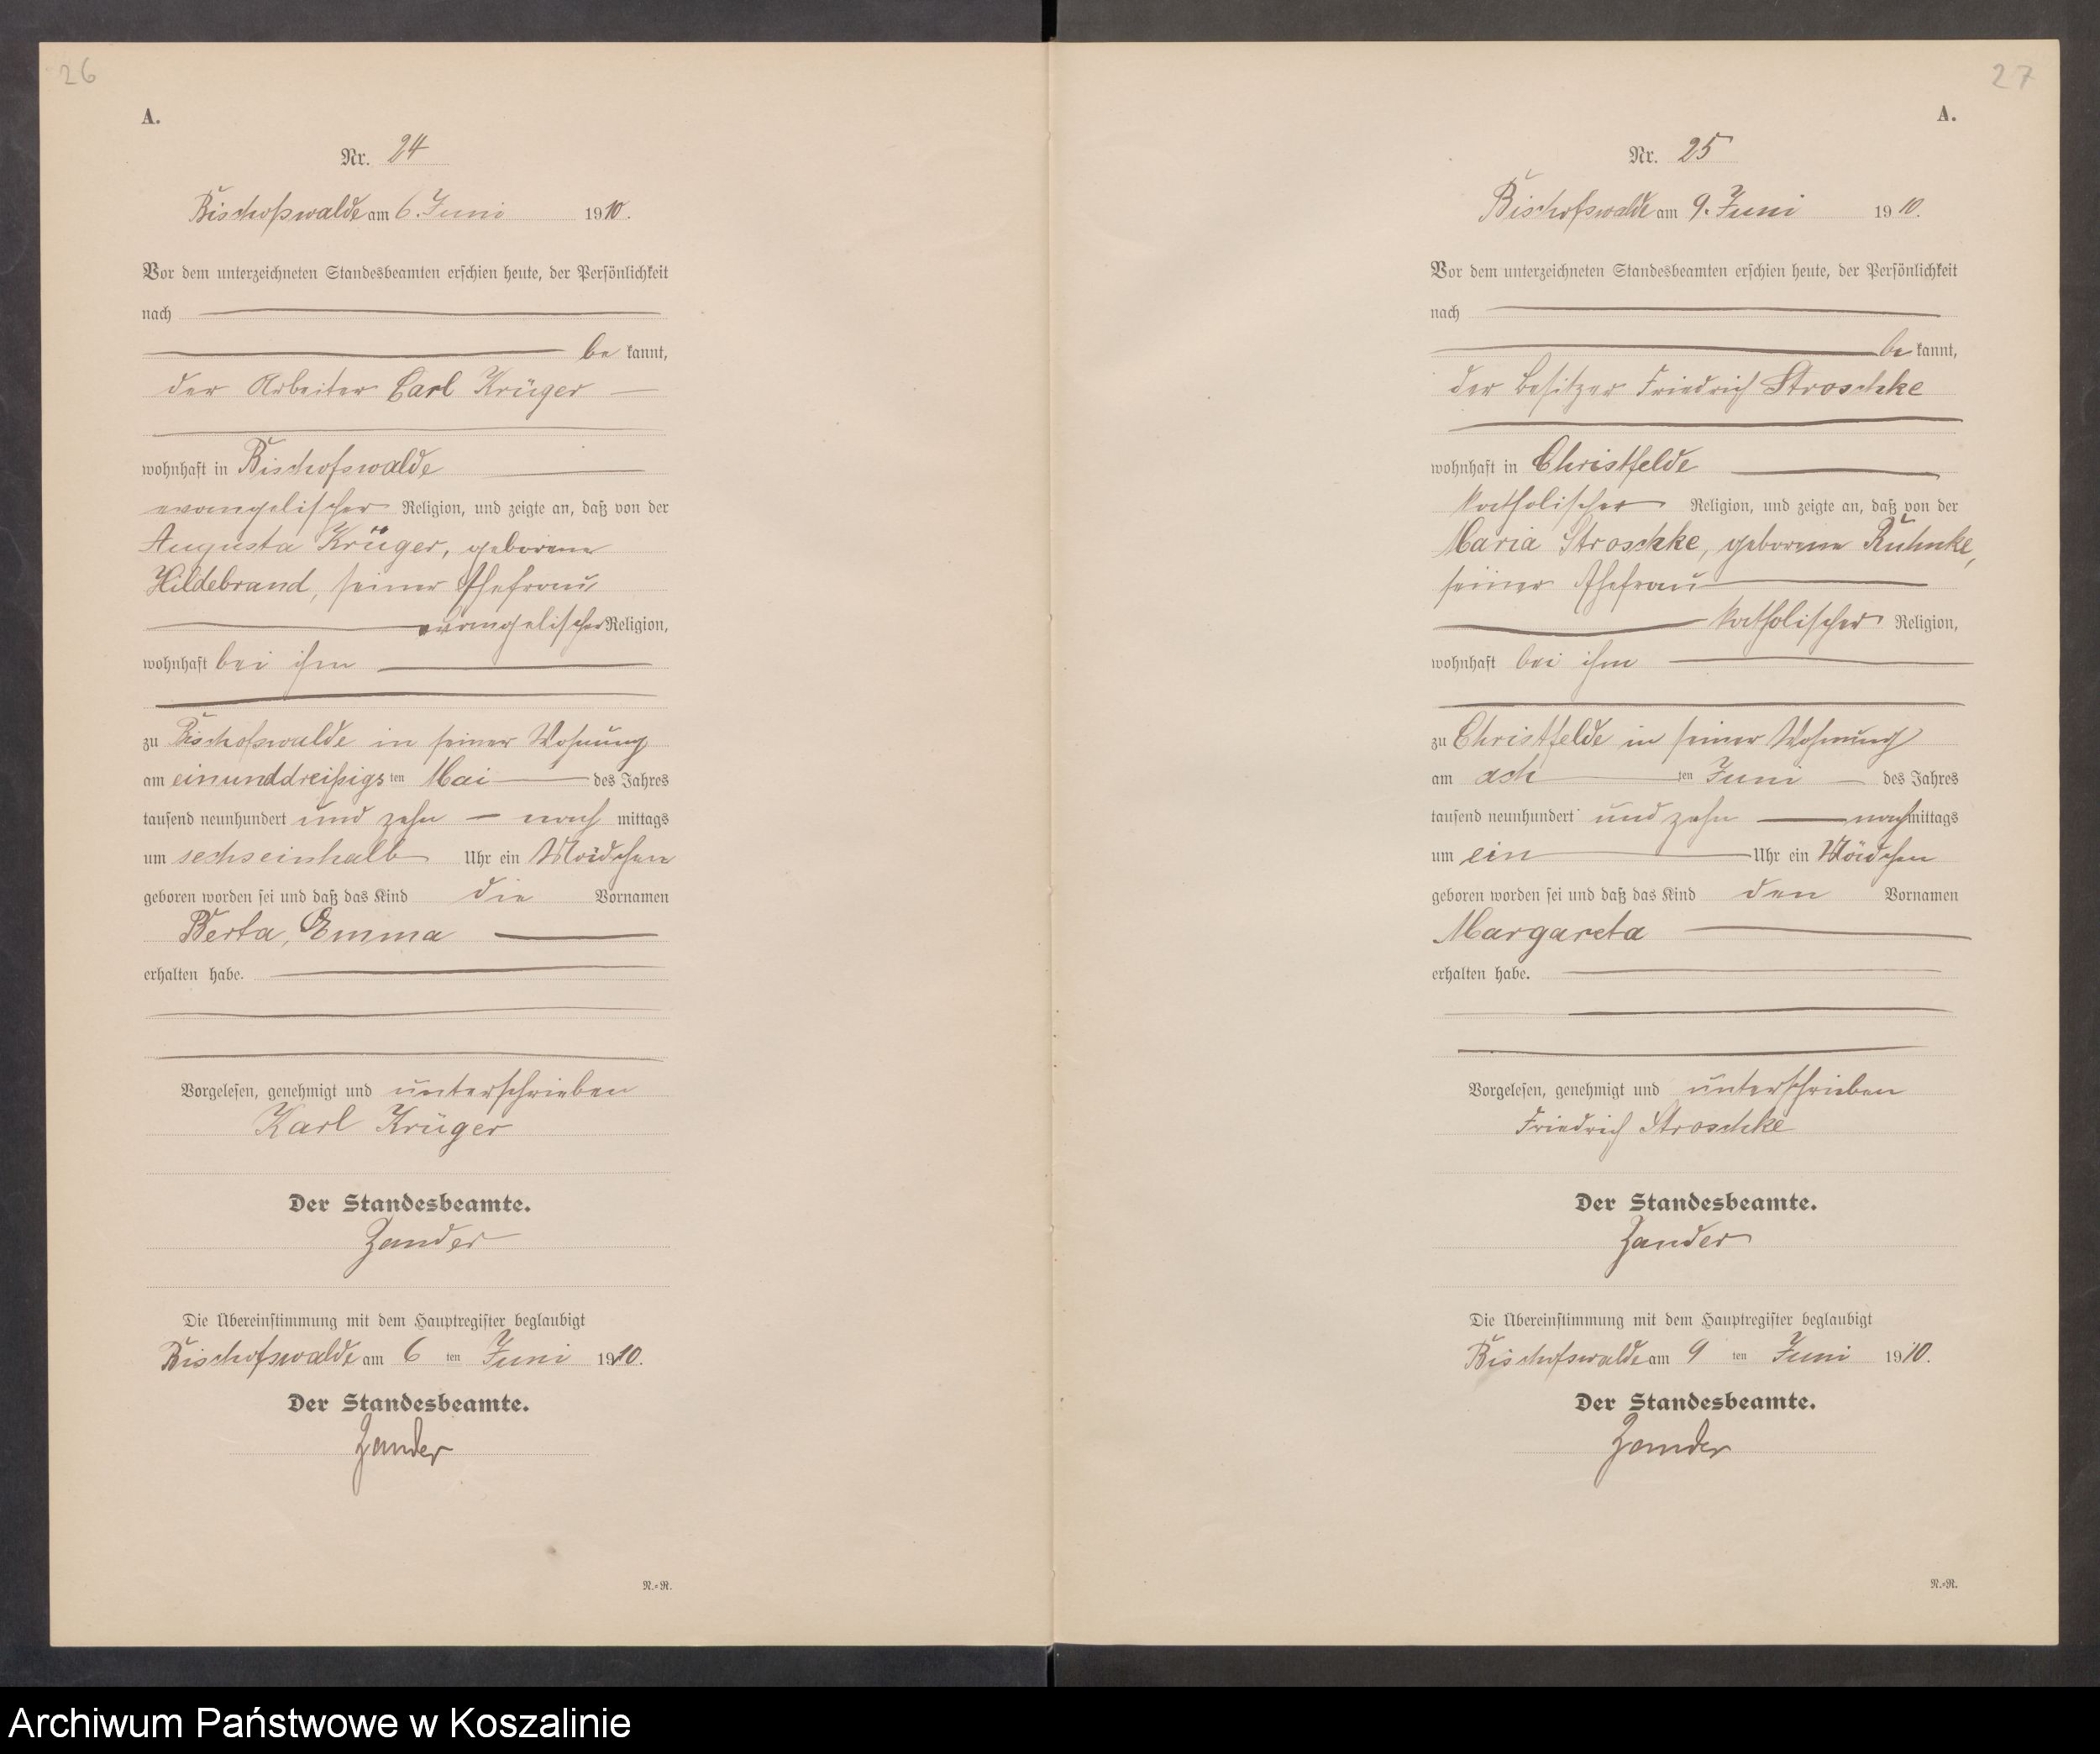 26
A.
Nr. 24
Bischofswalde am 6. Juni 1910.
Vor dem unterzeichneten Standesbeamten erschien heute, der Persönlichkeit
nach
be kannt,
der Arbeiter Carl Krüger
wohnhaft in Bischofswalde
evangelischer Religion, und zeigte an, daß von der
Augusta Krüger, geborene
Hildebrand, seiner Ehefrau
evangelischer Religion,
wohnhaft bei ihm
zu Bischofswalde in seiner Wohnung
am einunddreißigs ten Mai des Jahres
tausend neunhundert und zehn nach mittags
um sechseinhalb Uhr ein Mädchen
geboren worden sei und daß das Kind die Vornamen
Berta, Emma
erhalten habe.
Vorgelesen, genehmigt und unterschrieben
Karl Krüger
Der Standesbeamte.
Zander
Die Übereinstimmung mit dem Hauptregister beglaubigt
Bischofswalde am 6 ten Juni 1910.
Der Standesbeamte.
Zander
N.=R.
27
A.
Nr. 25
Bischofswalde am 9. Juni 1910.
Vor dem unterzeichneten Standesbeamten erschien heute, der Persönlichkeit
nach
be kannt,
der Besitzer Friedrich Stroschke
wohnhaft in Christfelde
katholischer Religion, und zeigte an, daß von der
Maria Stroschke, geborene Ruhnke,
seiner Ehefrau
katholischer Religion,
wohnhaft bei ihm
zu Christfelde in seiner Wohnung
am ach ten Juni des Jahres
tausend neunhundert und zehn nach mittags
um ein Uhr ein Mädchen
geboren worden sei und daß das Kind den Vornamen
Margareta
erhalten habe.
Vorgelesen, genehmigt und unterschrieben
Friedrich Stroschke
Der Standesbeamte.
Zander
Die Übereinstimmung mit dem Hauptregister beglaubigt
Bischofswalde am 9 ten Juni 1910.
Der Standesbeamte.
Zander
N.=R.
Archiwum Państwowe w Koszalinie